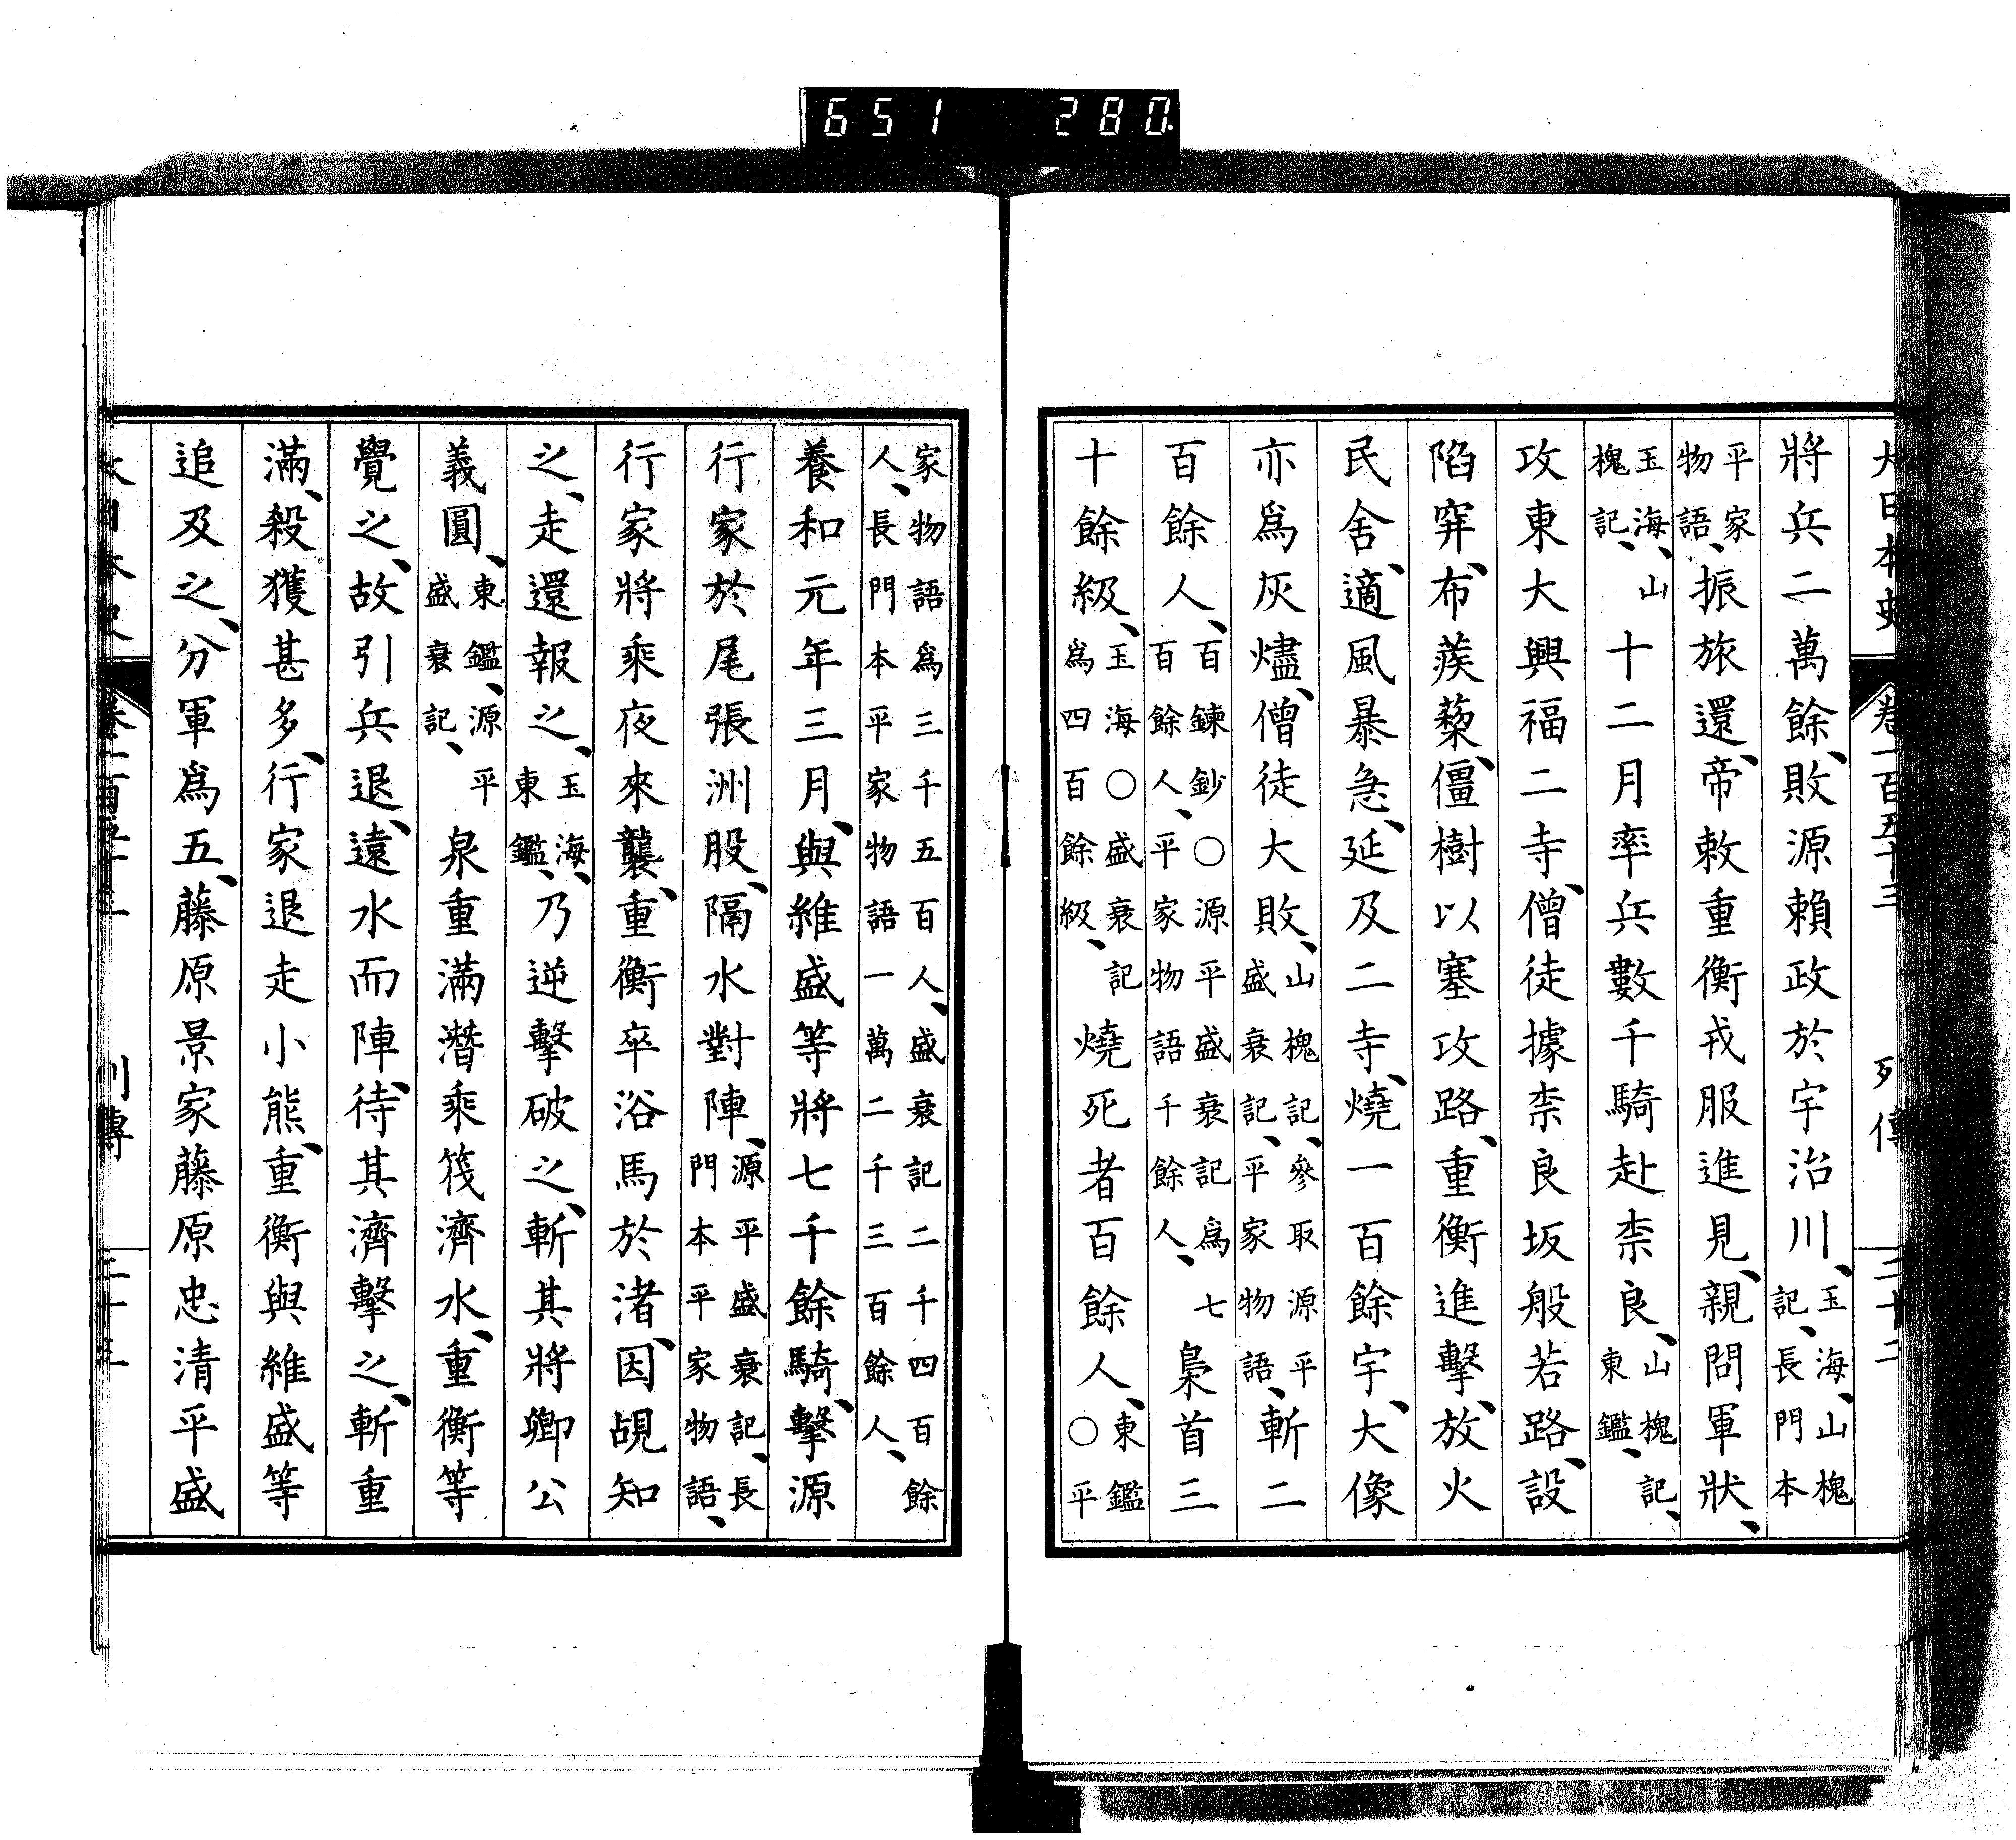 651 280
大日本史 卷一百五十三 列傳 三十二
將兵二萬餘、敗源賴政於宇治川、玉海、山槐記、長門本
平家物語、振旅還、帝敕重衡戎服進見、親問軍狀、
玉海、山槐記、十二月率兵數千騎赴柰良、山槐記、東鑑、
攻東大興福二寺、僧徒據柰良坂般若路、設
陷穽、布蒺蔾、僵樹以塞攻路、重衡進擊、放火
民舍、適風暴急、延及二寺、燒一百餘宇、大像
亦爲灰燼、僧徒大敗、山槐記、參取源平盛衰記、平家物語、斬二
百餘人、百鍊鈔○源平盛衰記爲七百餘人、平家物語千餘人、梟首三
十餘級、玉海○盛衰記爲四百餘級、燒死者百餘人、東鑑○平
家物語爲三千五百人、盛衰記二千四百餘人、長門本平家物語一萬二千三百餘人、
養和元年三月、與維盛等將七千餘騎、擊源
行家於尾張洲股、隔水對陣、源平盛衰記、長門本平家物語、
行家將乘夜來襲、重衡卒浴馬於渚、因覘知
之、走還報之、玉海、東鑑、乃逆擊破之、斬其將卿公
義圓、東鑑、源平盛衰記、泉重滿潛乘筏濟水、重衡等
覺之、故引兵退、遠水而陣、待其濟擊之、斬重
滿、殺獲甚多、行家退走小熊、重衡與維盛等
追及之、分軍爲五、藤原景家藤原忠清平盛